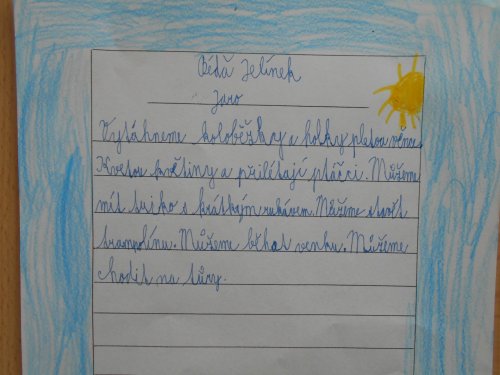 Béďa Jelínek
Jaro
Vytáhneme koloběžky a holky pletou věnce.
Kvetou květiny a přilétají ptáčci. Můžeme
mít triko s krátkým rukávem. Můžeme stavět
trampolínu. Můžeme běhat venku. Můžeme
chodit na túry.